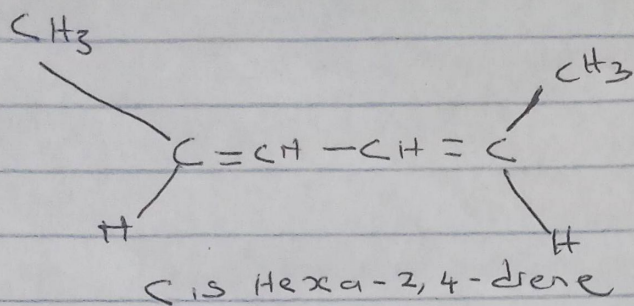 CH3
CH3
C = CH - CH = C
H
H
Cis Hexa-2,4-diene